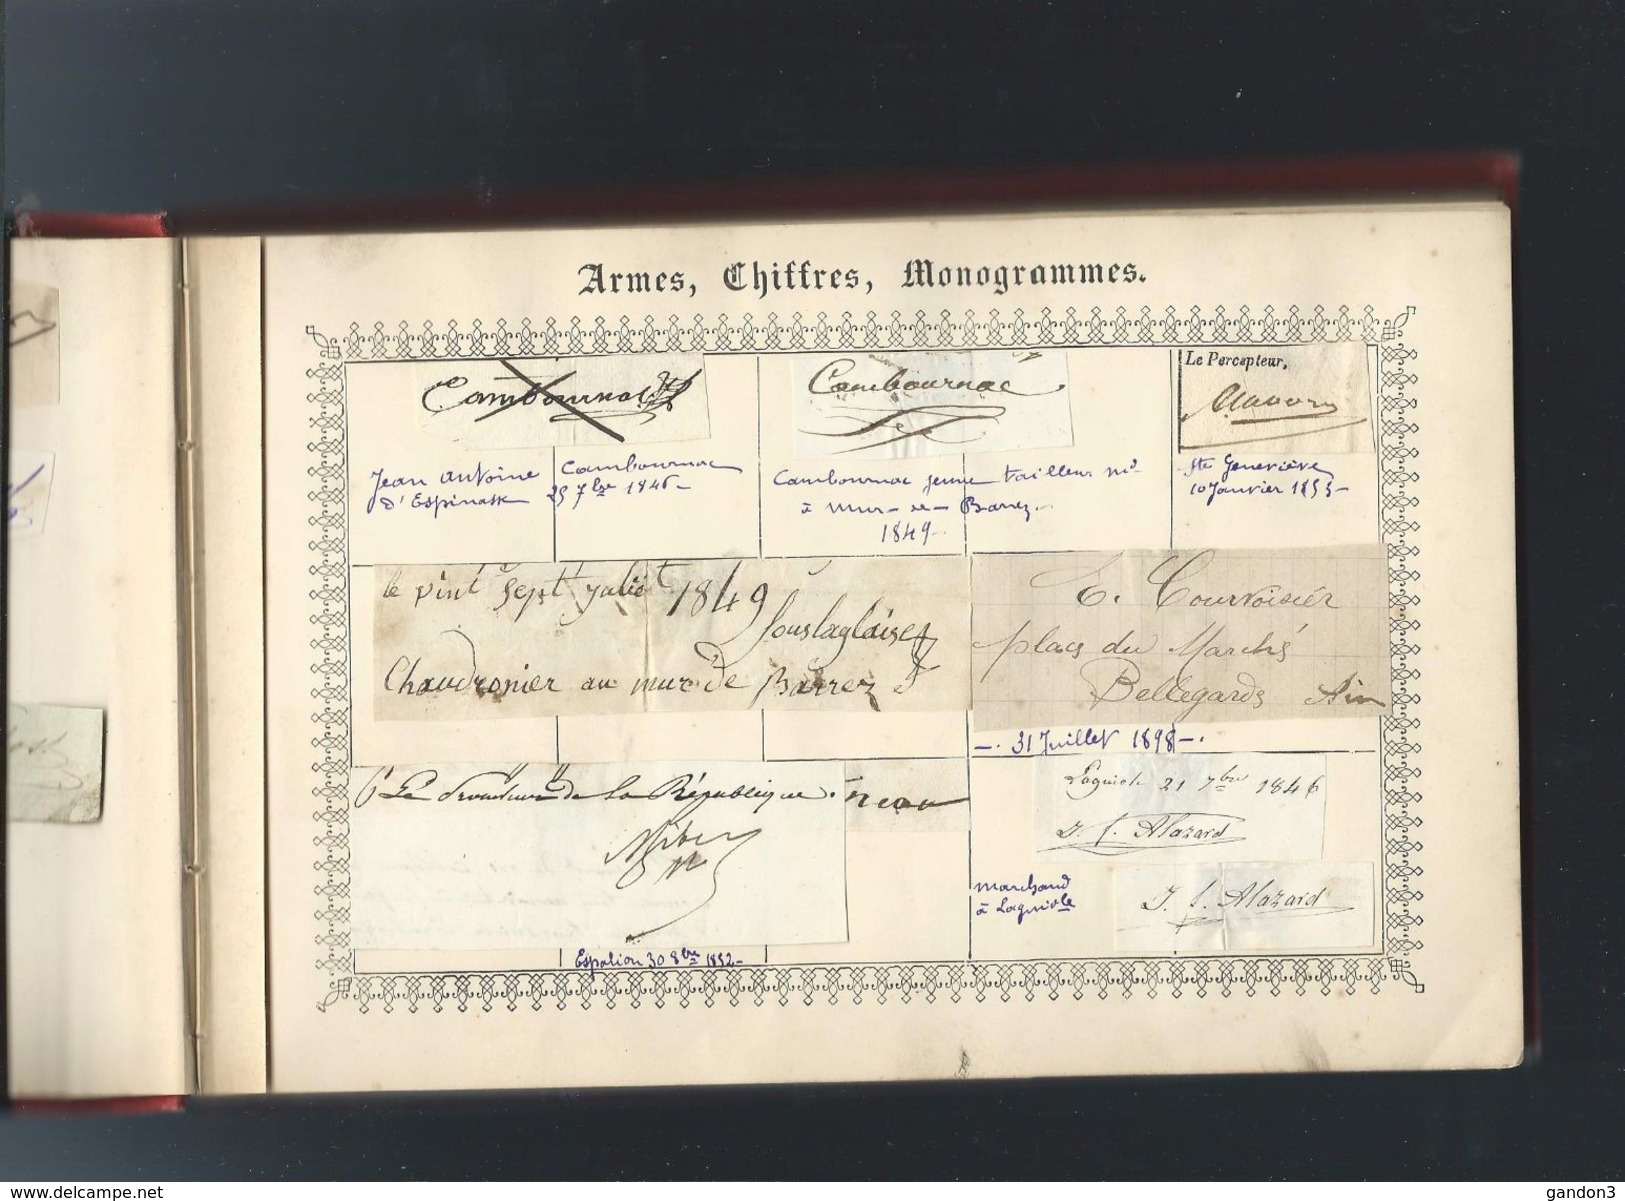 Armes, Chiffres, Monogrammes.
Cambournac
Cambournac
Le Percepteur,
Jean Antoine Cambournac
d'Espinasse 25 7bre 1846-
Cambournac jeune tailleur md
à Mur-de-Barrez-
1849-
Ste Geneviève
10 Janvier 1853-
le vint sept juliet 1849
Souslaglaise
Chaudronier au mur de Barrez
E. Courvoisier
place du Marché
Bellegarde Ain
-. 31 Juillet 1898-.
Le Procureur de la République
Espalion 30 8bre 1852-
Laguiole 21 7bre 1846
J. f. Alazard
marchand
à Laguiole
J. f. Alazard
delcampe.net
gandon3